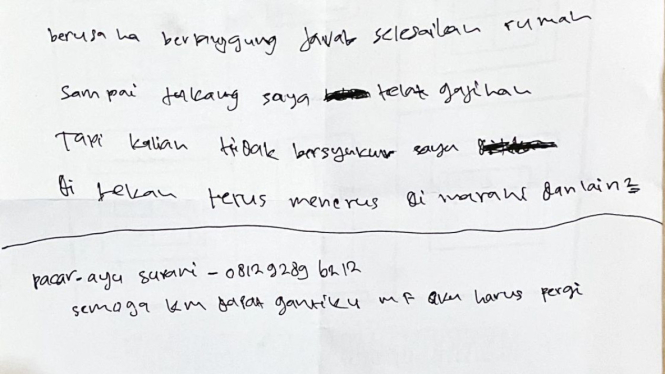 berusaha bertanggung jawab selesaikan rumah
sampai tukang saya telat gajihan
Tapi kalian tidak bersyukur saya
Di tekan terus menerus Di marahi dan lain2
pacar-ayu surani - 081292896212
semoga km dapat gantiku mf aku harus pergi